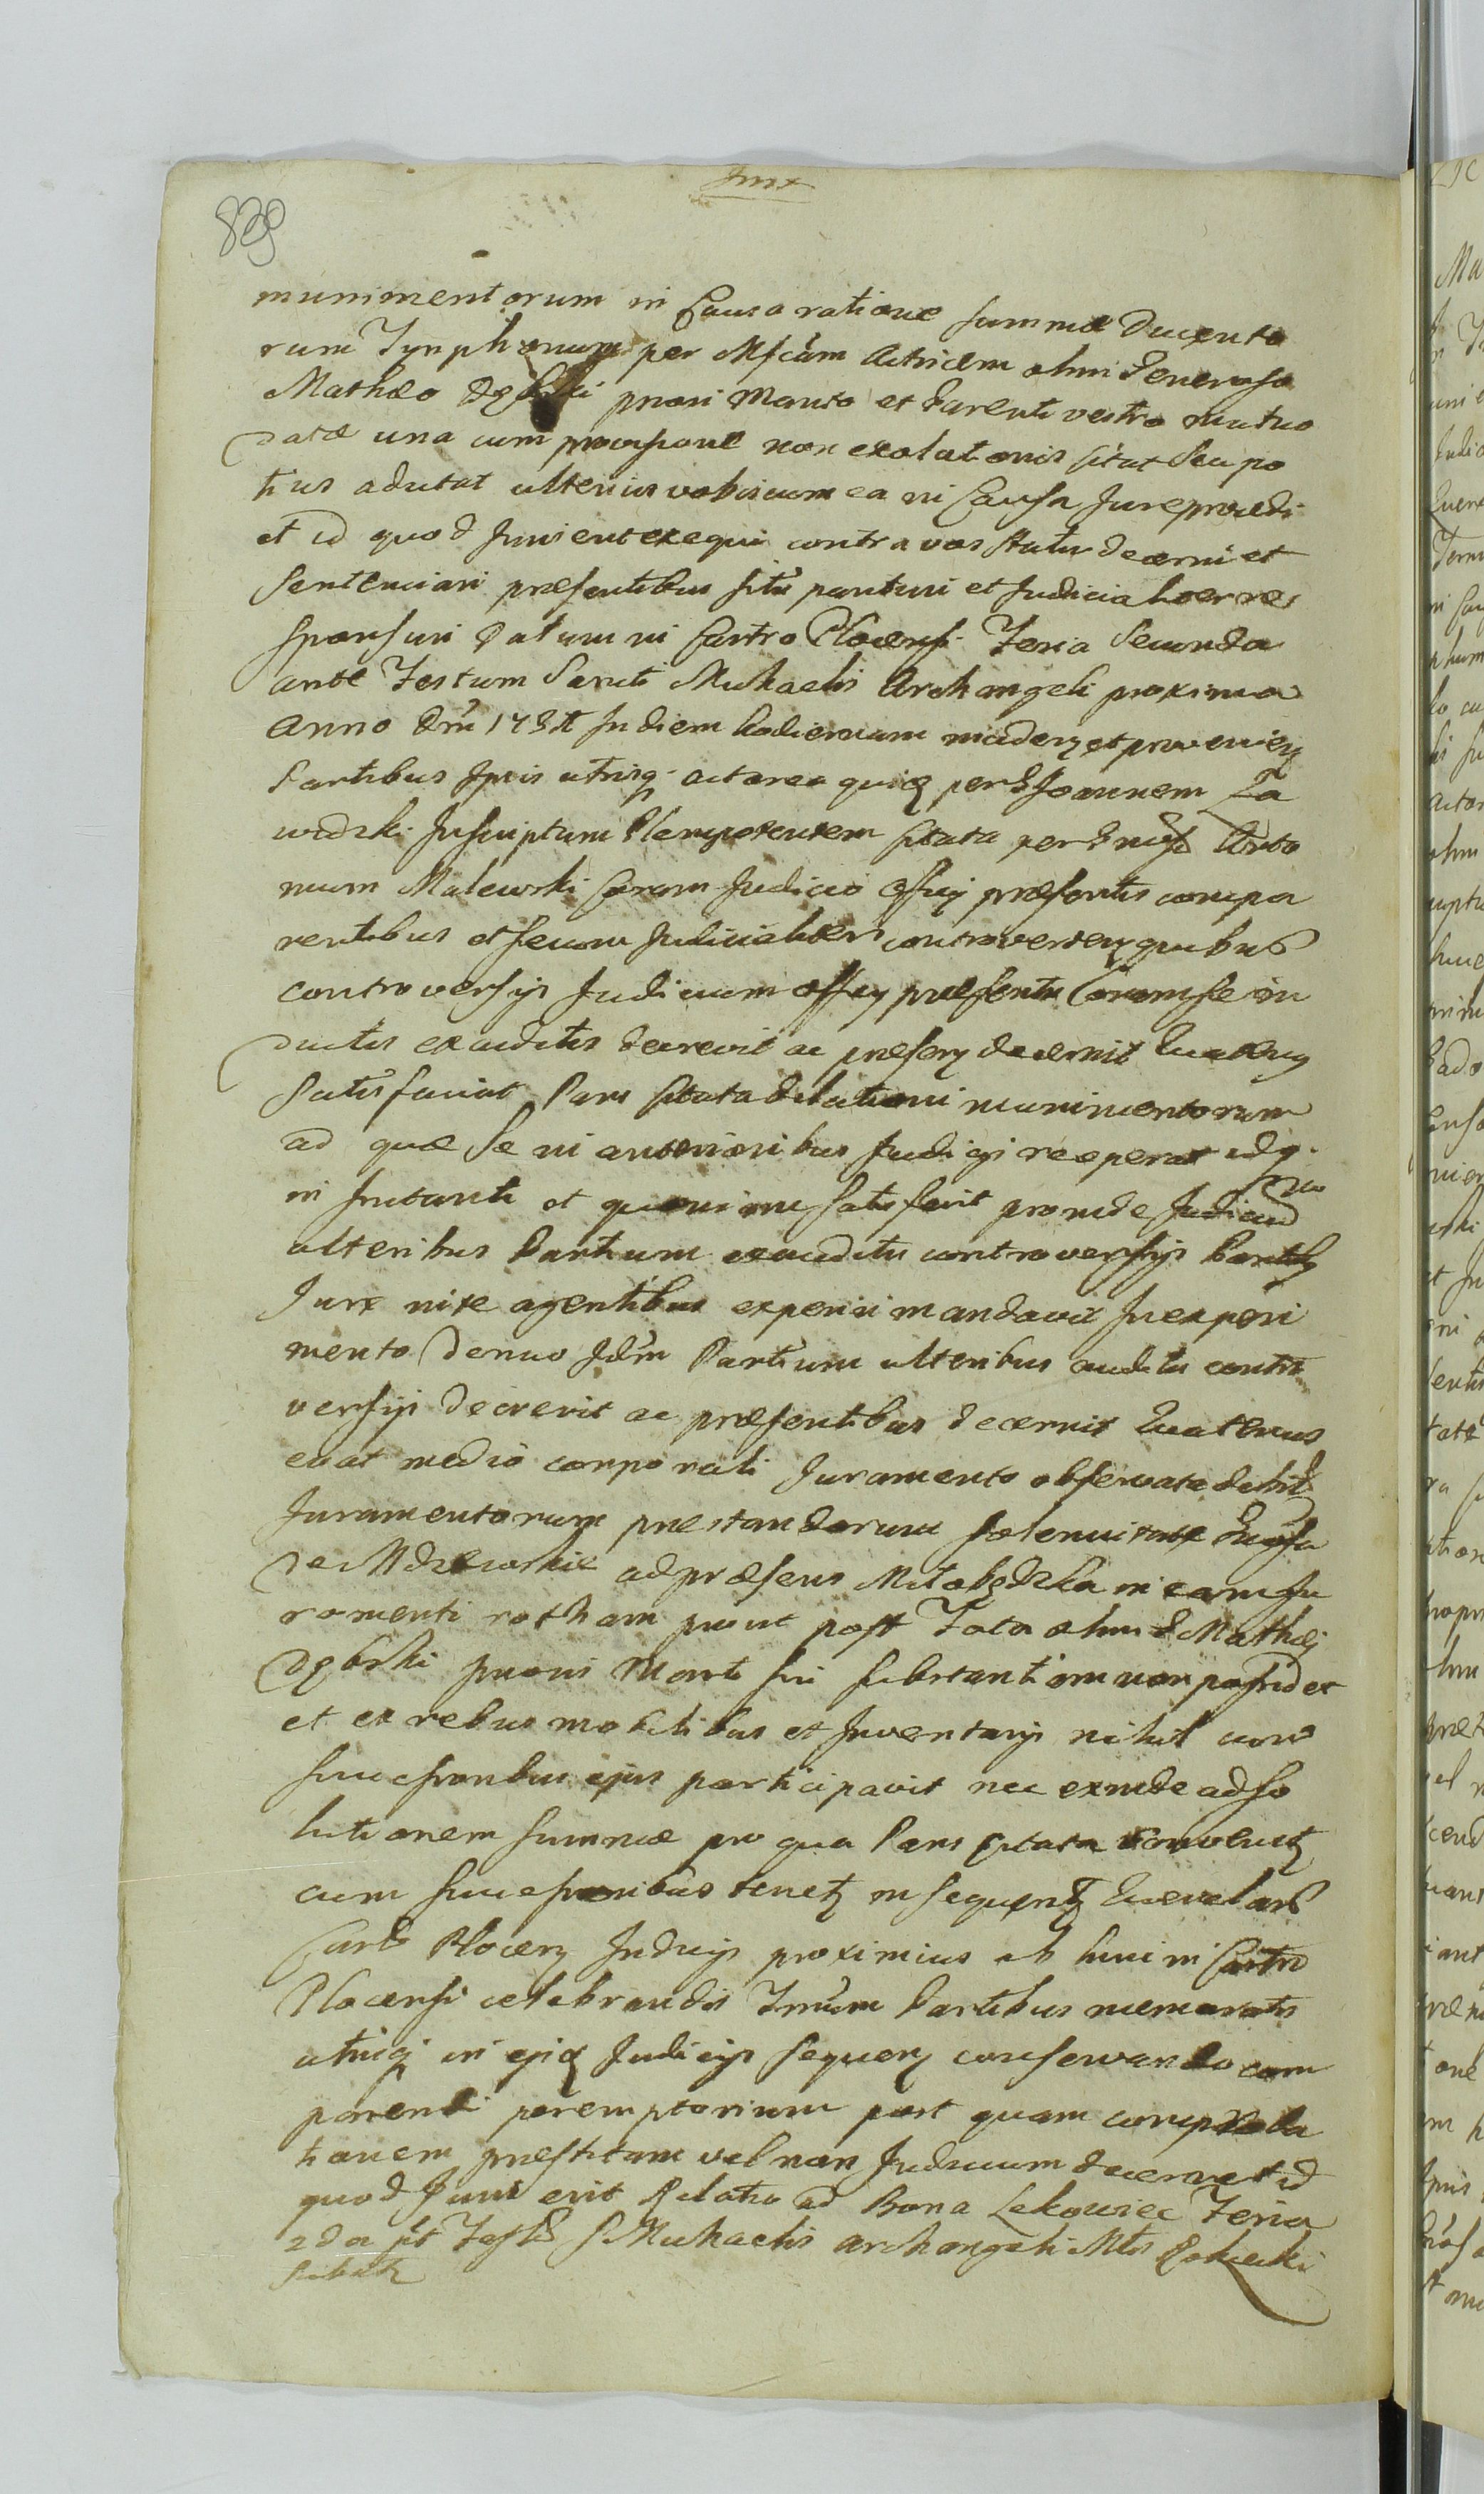 839
munimentorum in Causa ratione summæ Ducento
rum Tynphonum per Mfcam Actricem olim Generoso
Mathæo Dębski priori Marito et Parenti vestro mutuo
datæ una cum provisione non exolutionis citat Seu po
tius adcitat ulterius vobiscum ea in Causa Jure procedi
et id quod Juris erit exequi contra vos statui decerni et
Sentenciari præsentibus sitis parituri et Judicialiter res
sponsuri Datum in Castro Plocensi Feria Secunda
ante Festum Sancti Michaelis Archangeli proxima
Anno Dni In diem hodiernam inciden et provenien
Partibus Ipsis utrisq actorea quidem per Joannem Za
widzki Inscriptum Plenipotentem Citata per Anto
nium Malewski Coram Judicio Officij præsentis compa
rentibus et secum Judicialiter controverten quibus
controversijs Judicium Officij præsentis Coram se in
ductis exauditis decrevit ac præsen decernit Quatenus
Satisfaciat Pars Citata delationi munimentorum
ad quæ Se in anterioribus Judicijs receperat idq
in Instanti et quoniam satisfecit proinde Judicium
ulteribus Partium exauditis controversijs Partibus
Jure rite agentibus experiri mandavit In experi
mento denuo Idem Partium ulteribus auditis contro
versijs decrevit ac præsentibus decernit Quatenus
evat medio corporali Juramento observata debita
Juramentorum prestandorum solennitate
de Mdzewskie ad præsens Miłobędzka in eam Ju
ramenti rotham prout post Fata olim G Mathæi
Dębski prioris Mariti sui substantiam non possidet
et ex rebus mobilibus et Inventarijs nihil cum
successoribus ejus participavit nec exinde ad so
lutionem summæ pro qua Pars Citata
cum successoribus tenetur in sequentibus Querelarum
Castri Plocen Judicijs proximius ab hinc in Castro
Plocensi celebrandis Trnum Partibus memoratis
utrisq in ejisdem Judicijs sequen conservando com
parendi peremptorium post quam
tionem præstitam vel non Judicium decernet id
quod Juris erit Relatio ad Bona Lekowiec Feria
2da pt Festum S Michaelis Archangeli Mtis